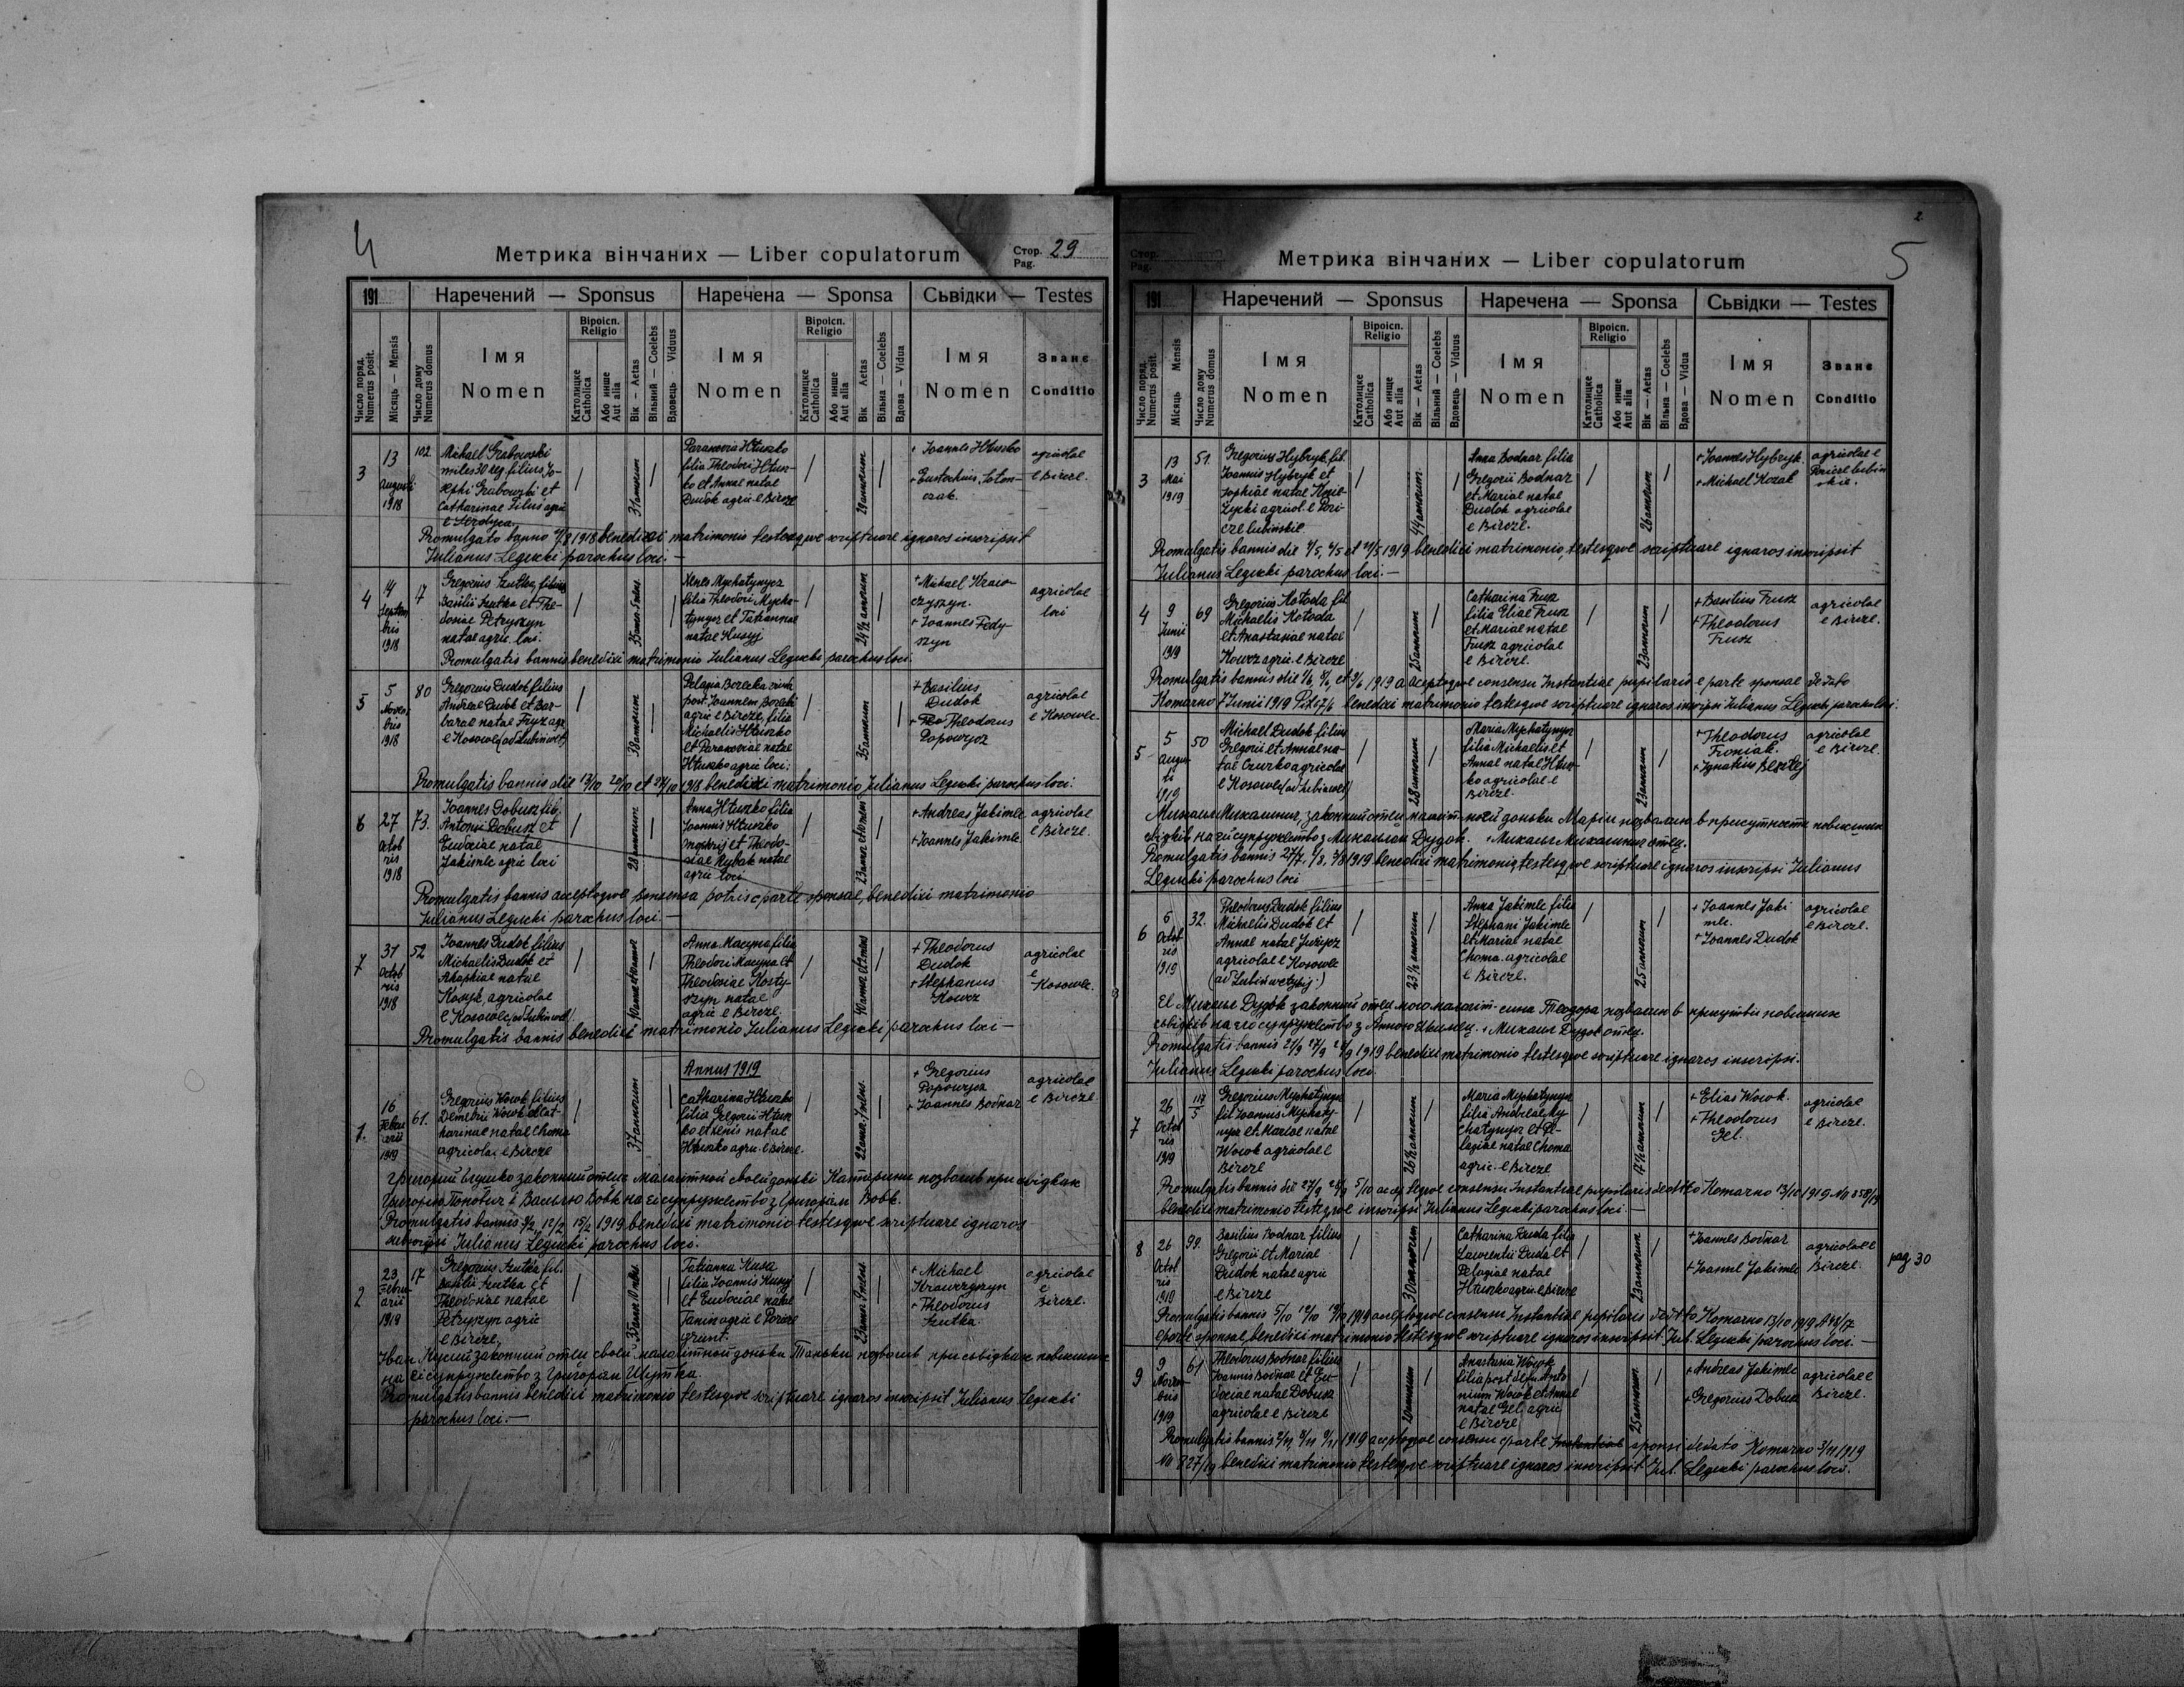 4
Метрика вінчаних — Liber copulatorum
Стор. 29
Pag.
191
Наречений — Sponsus
Наречена — Sponsa
Сьвідки — Testes
Число поряд.
Numerus posit.
Місяць — Mensis
Число дому
Numerus domus
Імя
Nomen
Віроісп.
Religio
Католицке
Catholica
Або инше
Aut alia
Вік — Aetas
Вільний — Coelebs
Вдовець — Viduus
Імя
Nomen
Віроісп.
Religio
Католицке
Catholica
Або инше
Aut alia
Вік Aetas
Вільна — Coelebs
Вдова — Vidua
Імя
Nomen
Званє
Conditio
3
13
Augusti
1918
102
Michael Grabowski
miles 30 reg. filius Jo-
sephi Grabowski et
Catharinae Filus agri
31 annorum
Paraxevia Htuszko
filia Theodori Htusz-
ko et Annae natae
Dudok agric e Bircze
29 annorum
+ Joannes Htuszko
+ Eustachius
agricolae
e Bircze.
Promulgato banno 11/8 1918 benedixi matrimonio testesque scripturae ignaros inscripsit
Julianus Legucki parochus loci.—
4
14
Septem
bris
1918
17
Gregorius Szutka, filius
Basilii Szutka et The-
dosiae Petryszyn
natae agric. loci.
Xenes Mychatynycz
filia Theodori Mycha-
tynycz et Tatiannae
natae Kusyj
24 1/2 annorum
+ Michael Kraw-
czyszyn.
+ Joannes Fedy-
szyn
agricolae
loci
Promulgatis bannis benedixi matrimonio Julianus Legucki parochus loci.
5
5
Novem
bris
1918
80
Gregorius Dudok filius
Andreae Dudok et Bar-
barae natae Fryz agr.
e Kosowec (ad Lubin wel)
38 annorum
Pelagia Borecka vidua
post Joannem Borecki
agric e Bircze, filia
Michaelis Htuszko
et Paraxeviae natae
Htuszko agric loci.
35 annorum
+ Basilius
Dudok
+ Theodorus
Popowycz
agricolae
e Kosowec.
Promulgatis bannis die 13/10 20/10 et 27/10 1918 benedixi matrimonio Julianus Legucki parochus loci.
6
27
Octob
ris
1918
73.
Joannes Dobusz fil.
Antonii Dobusz et
Eudociae natae
Jakimec agric loci
28 annorum
Anna Htuszko filia
Joannis Htuszko
Onyskrij et Theodo-
siae Rybak natae
agric loci
+ Andreas Jakimec
+ Joannes Jakimec
agricolae
e Bircze.
Promulgatis bannis acceptoque consensu patris e parte sponsae, benedixi matrimonio
Julianus Legucki parochus loci.—
7
31
Octob
ris
1918
52
Joannes Dudok filius
Michaelis Dudok et
Ahaphiae natae
Kosyk, agricolae
e Kosowec (ad Lubin wel).
Anna Macyna filia
Theodori Macyna et
Theodosiae Kosty-
szyn natae
agric e Bircze.
+ Theodorus
Dudok
+ Stephanus
Kowcz
agricolae
e
Kosowec.
Promulgatis bannis benedixi matrimonio Julianus Legucki parochus loci —
Annus 1919
1.
16
Febru
arii
1919
61.
Gregorius Wowk filius
Demetrii Wowk et Cat-
harinae natae Choma
agricolae e Bircze
37 annorum
Catharina Htuszko
filia Gregorii Htusz-
ko et Xenis natae
Htuszko agric. e Bircze.
+ Gregorius
Popowycz
+ Joannes Bodnar
agricolae
e Bircze
Григорий Глушко законний отець малолітной своєй доньки Катерини позволив при сьвідках
Григорію Попович і Васылю Вовк на єі супружество з Григорієм Вовк.
Promulgatis bannis 9/2, 12/2, 15/2 1919, benedixi matrimonio testesque scripturae ignaros
Julianus Legucki parochus loci.
2
23
Febru-
arii
1919
17
Gregorius Szutka fil.
Basilii Szutka et
Theodosiae natae
Petryszyn agric
e Bircze,
Tatianna Kusa
filia Joannis Kusyj
et Eudociae natae
Tanin agric e Poricze
grunt.
+ Michael
Krawczyszyn
+ Theodorus
Szutka.
agricolae
e
Bircze.
Іван Кусий законний отець своєй малолітной доньки Таньки позволив при сьвідках повисших
на єі супружество з Григорієм Шутка.
Promulgatis bannis benedixi matrimonio testesque scripturae ignaros inscripsit Julianus Legucki
parochus loci.—
2
5
Стор.
Pag.
Метрика вінчаних — Liber copulatorum
191
Наречений — Sponsus
Наречена — Sponsa
Сьвідки — Testes
Число поряд.
Numerus posit.
Місяць Mensis
Число дому
Numerus domus
Імя
Nomen
Віроісп.
Religio
Католицке
Catholica
Або инше
Aut alia
Вік — Aetas
Вільний — Coelebs
Вдовець — Viduus
Імя
Nomen
Віроісп.
Religio
Католицке
Catholica
Або инше
Aut alia
Вік — Aetas
Вільна — Coelebs
Вдова — Vidua
Імя
Nomen
Званє
Conditio
3
13
Mai
1919
51.
Gregorius Hybryk fil.
Joannis Hybryk et
Sophiae natae
agricol. e Pori-
cze lubinskie
44 annorum
Anna Bodnar filia
Gregorii Bodnar
et Mariae natae
Dudok agricolae
e Bircze.
26 annorum
+ Joannes Hybryk
+ Michael Kozak
agricolae e
Poricze lubin
skie.
Promulgatis bannis die et 11/5 1919 benedixi matrimonio, testesque scripturae ignaros inscripsit
Julianus Legucki parochus loci.—
4
9
Junii
1919
69
Gregorius Kotoda fil
Michaelis Kotoda
et Anastasiae natae
Kowcz agric. e Bircze
25 annorum
Catharina Frusz
filia Eliae Frusz
et Mariae natae
Frusz agricolae
e Bircze.
23 annorum
+ Basilius Frusz
+ Theodorus
Frusz
agricolae
e Bircze.
Promulgatis bannis die 1919 acceptoque consensu Instantiae pupilaris e parte sponsae de dato
Komarno 7 Junii 1919 benedixi matrimonio testesque scripturae ignaros inscripsi Julianus Legucki parochus loci.
5
5
Augu-
sti
1919
50
Michael Dudok filius
Gregorii et Annae na-
tae Czurko agricolae
e Kosowec (ad Lubin wel)
28 annorum
Maria Mychatynycz
filia Michaelis et
Annae natae Htusz-
ko agricolae e
Bircze.
23 annorum
+ Theodorus
Froniak.
+ Ignatius
agricolae
e Bircze.
законний отець малолітной доньки Марии позволив в присутности повисших
сьвідків на єі супружество з Михайлом Дудок.
Promulgatis bannis 27/7, 1/8, 3/8 1919 benedixi matrimonio, testesque scripturae ignaros inscripsi Julianus
Legucki parochus loci
6
6
Octob
ris
1919
32.
Theodorus Dudok filius
Michaelis Dudok et
Annae natae
agricolae e Kosowec
(ad Lubin wetykij.)
23 1/2 annorum
Anna Jakimec filia
Stephani Jakimec
et Mariae natae
Choma agricolae
e Bircze.
25 annorum
+ Joannes Jaki
mec.
+ Joannes Dudok
agricolae
e Bircze.
Дудок законний отець мого малоліт. сина Теодора позволив в присутности повисших
сьвідків на его супружество з Анною Якимец. + Михаил Дудок отец.
Promulgatis bannis 21/9 27/9 28/9 1919 benedixi matrimonio testesque scripturae ignaros inscripsi.
Julianus Legucki parochus loci.
7
26
Octob
ris
1919
117
3
Gregorius Mychatynycz
fil Joannis Mychaty-
nycz et Mariae natae
Wowk agricolae e
Bircze
26 1/2 annorum
Maria Mychatynycz
filia Andreae My-
chatynycz et Pe-
lagiae natae Choma
agric. e Bircze
+ Elias Wowk.
+ Theodorus
Gel.
agricolae
e Bircze.
Promulgatis bannis die 27/9 28/9 5/10 acceptoque consensu Instantiae pupilaris de dtto Komarno 13/10 1919 No 858/19
benedixi matrimonio testesque inscripsi Julianus Legucki parochus loci.—
8
26
Octob
ris
1919
99.
Basilius Bodnar filius
Gregorii et Mariae
Dudok natae agric
e Bircze
30 annorum
Catharina Duda filia
Laurentii Duda et
Pelagiae natae
Htuszko agric. e Bircze
23 annorum
+ Joannes Bodnar
+ Joannes Jakimec
agricolae e
Bircze.
pag 30
Promulgatis bannis 5/10 12/10 19/10 1919 acceptoque consensu Instantiae pupilaris de dtto Komarno 13/10 1919
e parte sponsae, benedixi matrimonio testesque scripturae ignaros inscripsit Jul. Legucki parochus loci.—
9
9
Novem
bris
1919
61
Theodorus Bodnar filius
Joannis Bodnar et Eu-
dociae natae Dobusz
agricolae e Bircze
20 annorum
Anastasia Wowk
filia post defun. Anto
nium Wowk et Annae
natae Gel, agric
e Bircze
25 annorum
+ Andreas Jakimec
+ Gregorius Dobusz
agricolae e
Bircze.
Promulgatis bannis 1919 acceptoque consensu e parte sponsi de dato Komarno 3/11 1919
No 827/19 benedixi matrimonio testesque scripturae ignaros inscripsit Jul. Legucki parochus loci.